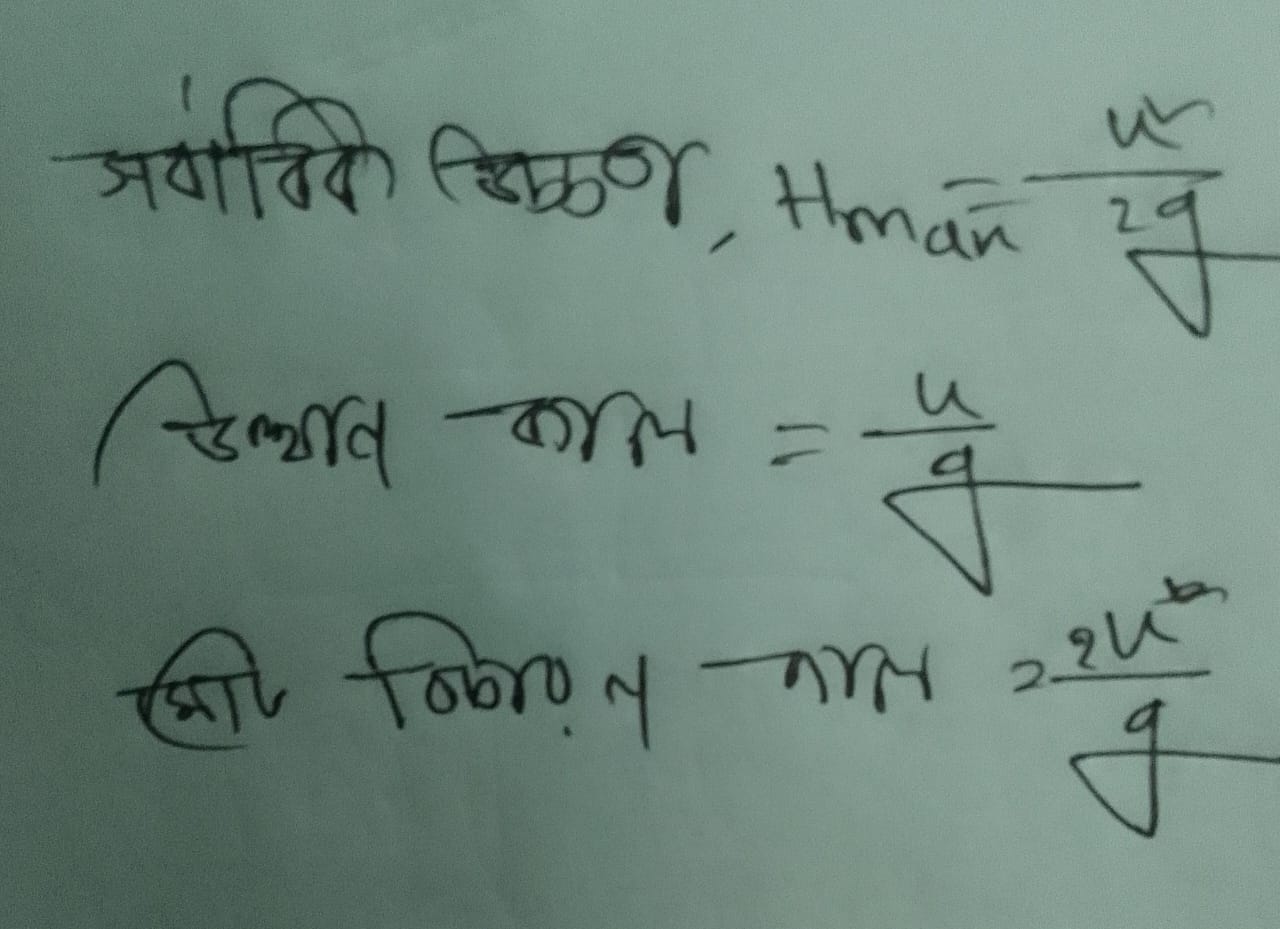 সর্বাধিক উচ্চতা, Hmax = u²/2g
উত্থান কাল = u/g
মোট বিচরণ কাল = 2u/g